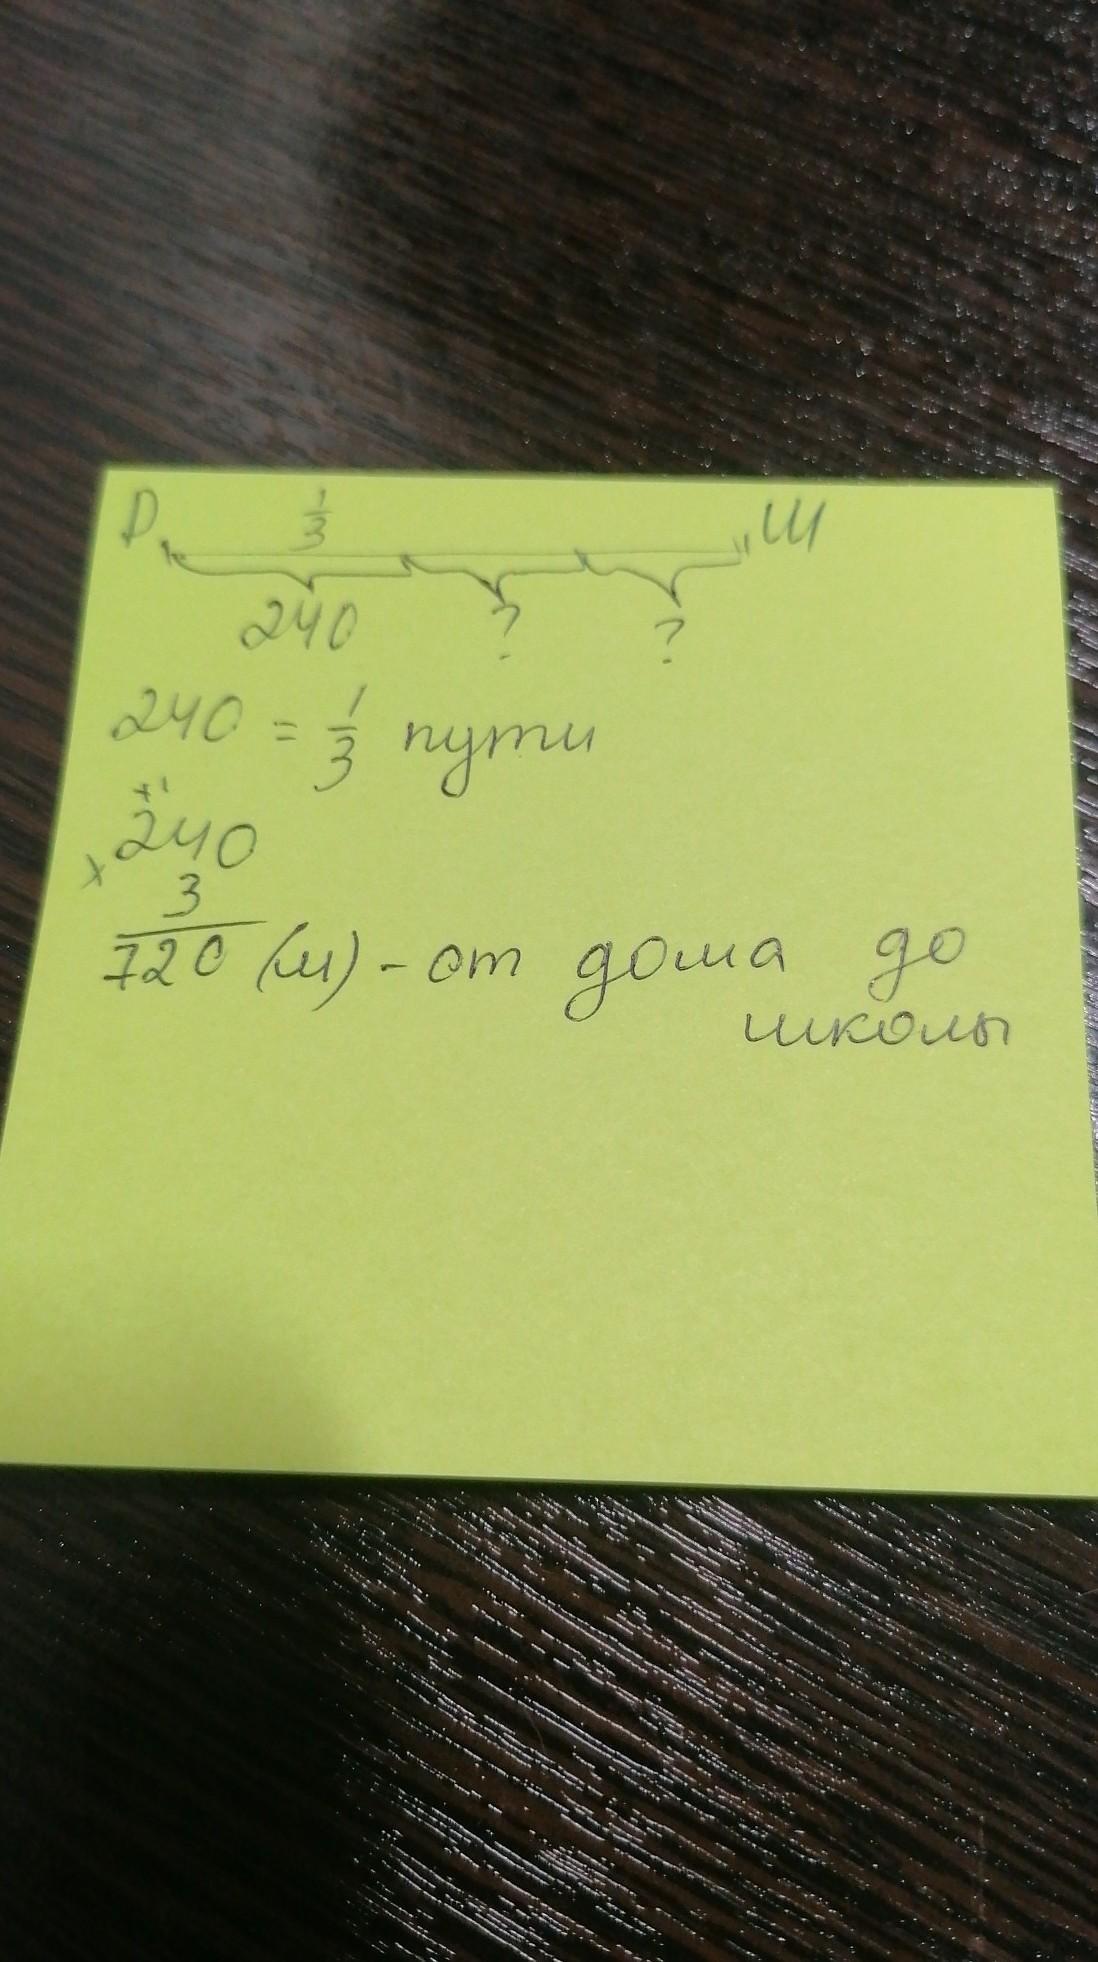 D 1/3 Ш
240 ? ?
240 = 1/3 пути
+1
× 240
3
720 (м) - от дома до
школы